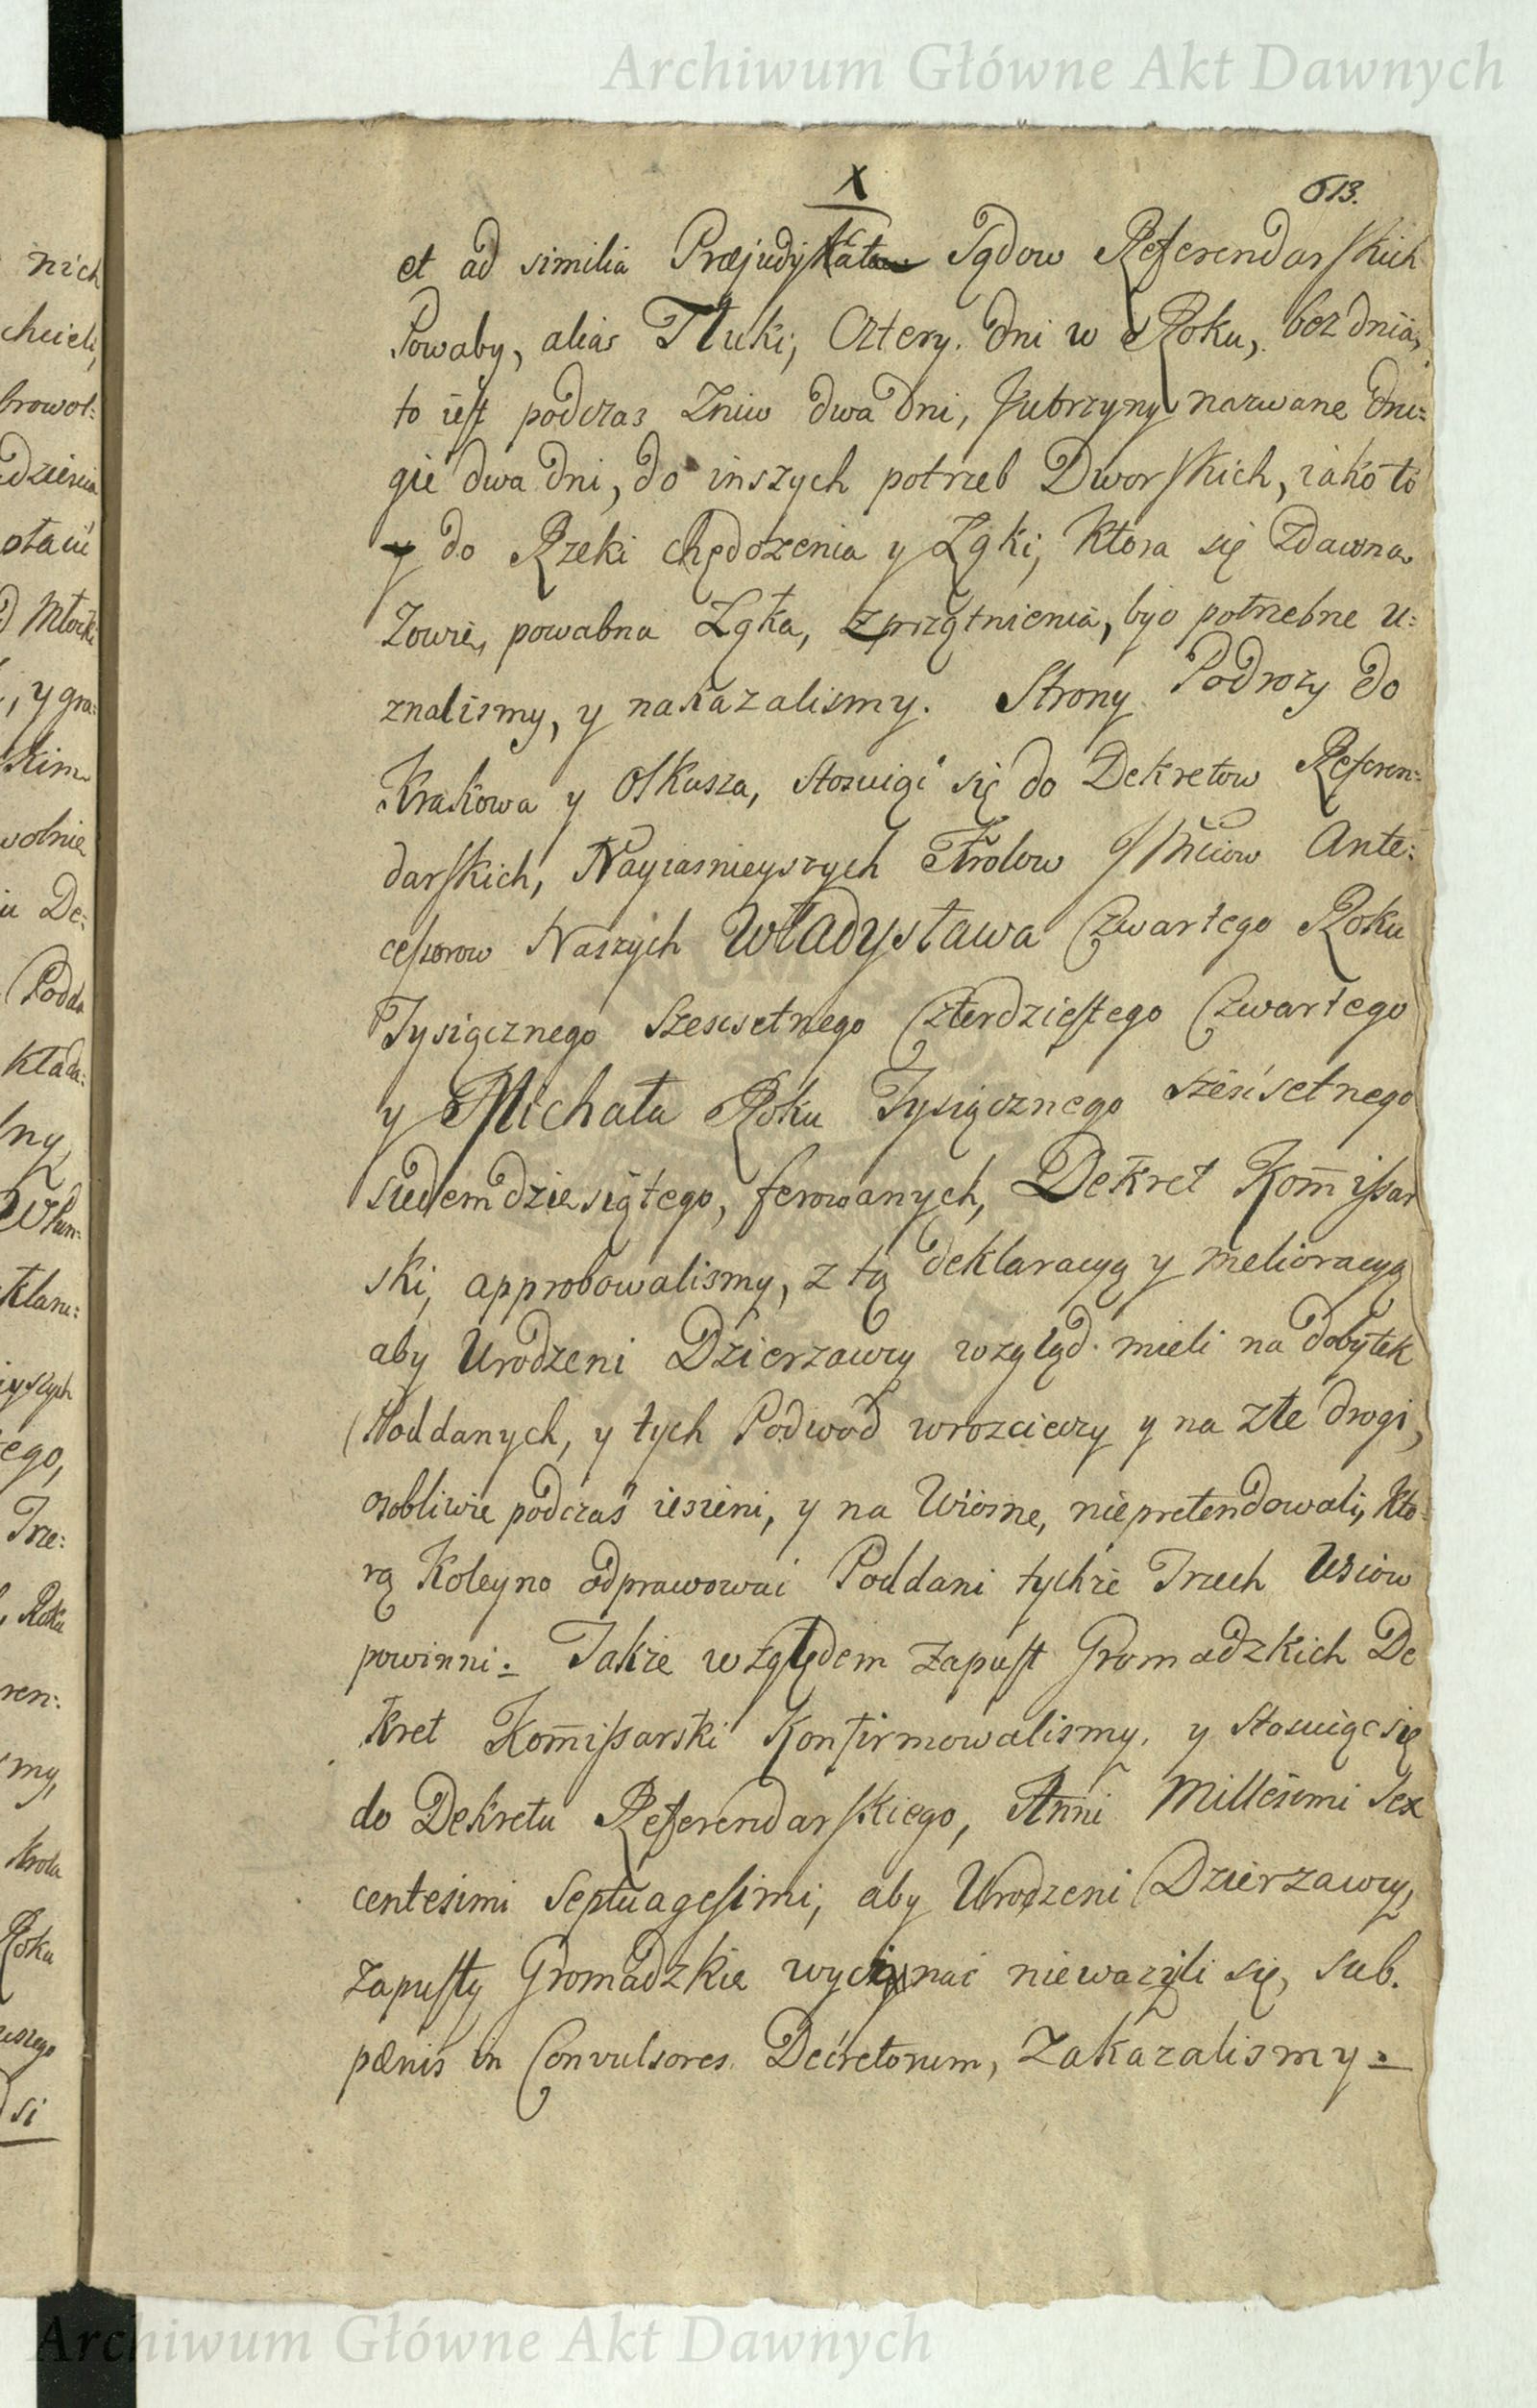 Archiwum Główne Akt Dawnych
X
613.
et ad similia Præjudykata Sądow Referendarskich
Powaby, alias Tłuki, Cztery dni w Roku, bez dnia,
to iest podczas Zniw dwa dni, Jutrzyny nazwane dru=
gie dwa dni, do inszych potrzeb Dworskich, iako to
y do Rzeki chędozenia y Łąki, Ktora się Zdawna
Zowie, powabna Łąka, zprzątnienia, byo potrzebne u=
znalismy, y nakazalismy. Strony Podrozy do
Krakowa y Olkusza, stosuiąć się do Dekretow Referen=
darskich, Nayiasnieyszych Krolow Ante=
cessorow Naszych Władysława Czwartego Roku
Tysiącznego Szescsetnego Czterdziestego Czwartego
y Michała Roku Tysiącznego sześćsetnego
siedemdziesiątego, ferowanych, Dekret Kom̄issar
ski, approbowalismy, z tą deklaracyą y melioracyą
aby Urodzeni Dzierzawcy wzgląd mieli na dobytek
Poddanych, y tych Podwod wrozcieczy y na złe drogi,
osobliwie podczas iesieni, y na Wiosne, niepretendowali, kto=
rą Koleyno odprawować Poddani tychże Trzech Wsiow
powinni. Także względem zapust Gromadzkich De
kret Kom̄issarski Konfirmowalismy, y stosuiąc się
do Dekretu Referendarskiego, Anni Millesimi Sex
centesimi Septuagesimi, aby Urodzeni Dzierzawcy,
zapusty Gromadzkie wycinać niewazyli się, sub.
pænis in Convulsores Decretorum, Zakazalismy.
Archiwum Główne Akt Dawnych